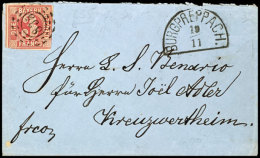 BAYERN
BURGPREPPACH.
19
11
Herrn L. S. Benario
für Herrn Joël Adler
frco
Kreuzwertheim.